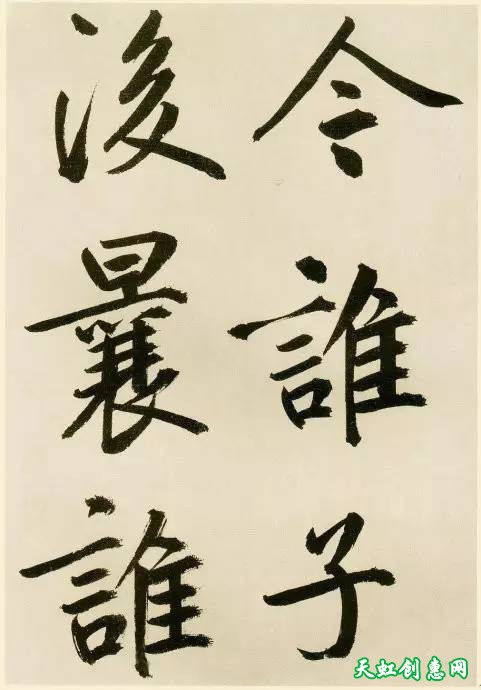 今誰子
後曩誰
天虹创惠网